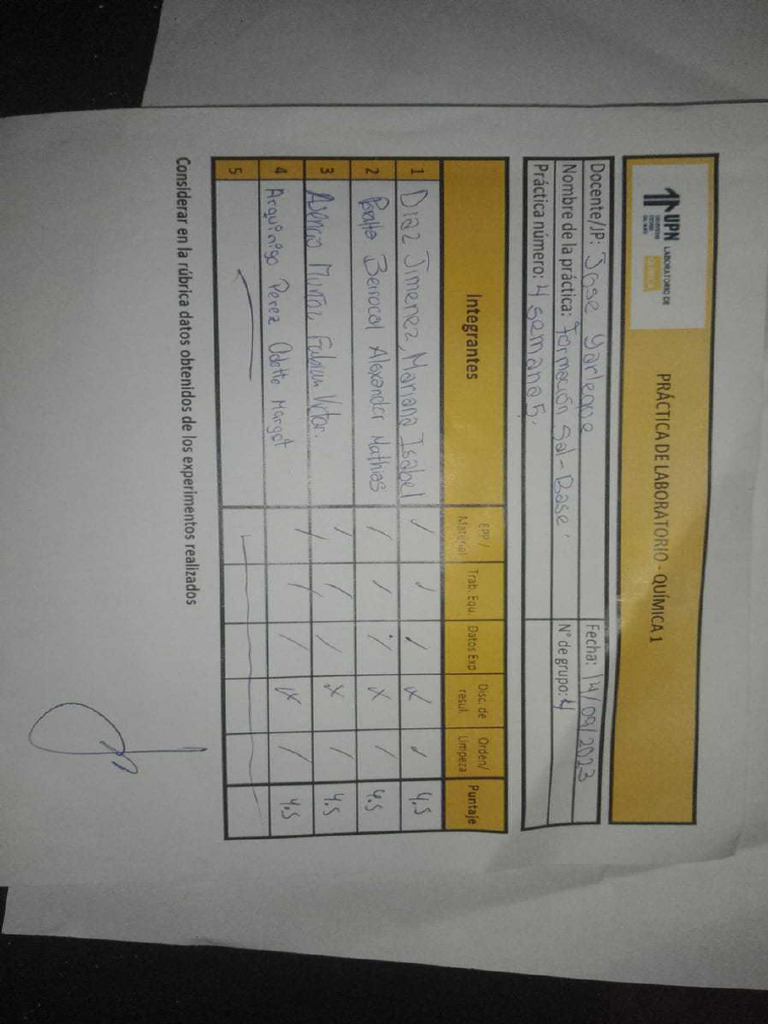 UPN LABORATORIO DE
PRÁCTICA DE LABORATORIO - QUÍMICA 1
Docente/JP: Jose Yarlegue Fecha: 14/09/2023
Nombre de la práctica: Formación Sal-Base. N° de grupo: 4
Práctica número: 4 semana 5.
Integrantes EPP/ Material Trab. Equ. Datos Exp Disc. de result. Orden/ Limpeza Puntaje
1 Diaz Jimenez, Mariana Isabel / / / X / 4.5
2 Berrocal Alexander Mathias / / / X / 4.5
3 Asencio Muñoz Fabian Victor. / / / X / 4.5
4 Arquinigo Perez Odette Margot / / / X / 4.5
5
Considerar en la rúbrica datos obtenidos de los experimentos realizados